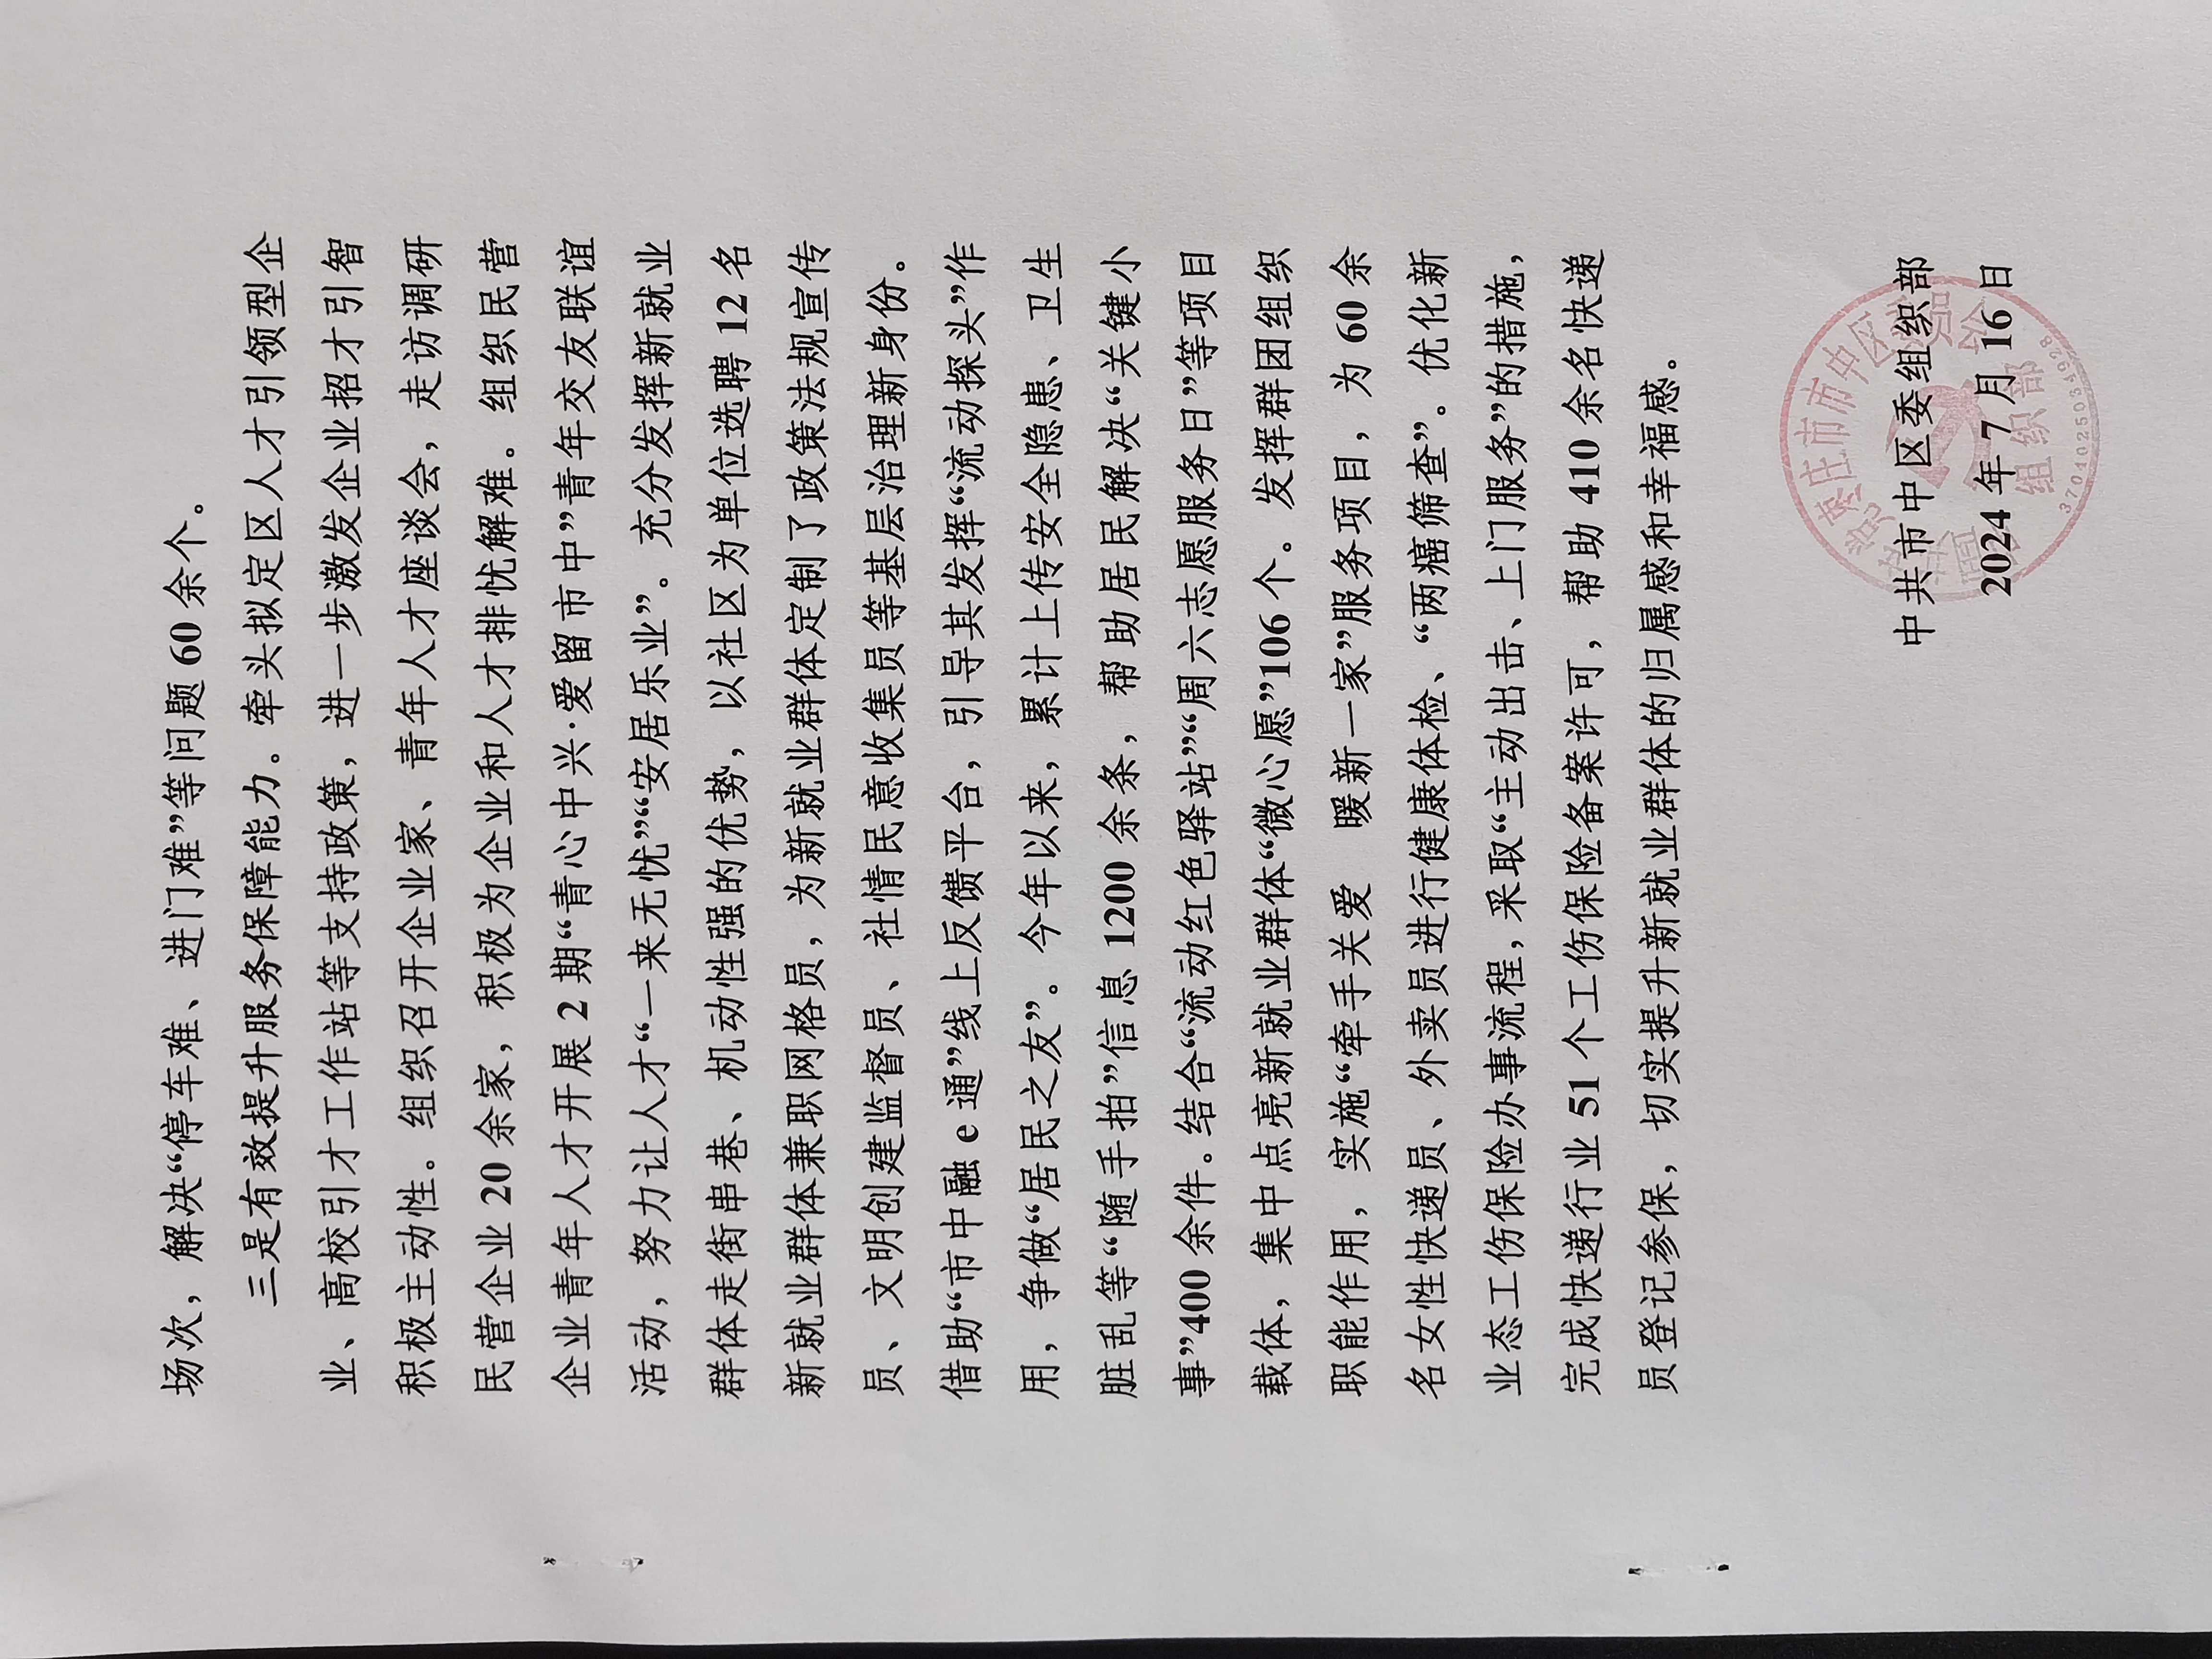 场次，解决“停车难、进门难”等问题 60 余个。
三是有效提升服务保障能力。牵头拟定区人才引领型企
业、高校引才工作站等支持政策，进一步激发企业招才引智
积极主动性。组织召开企业家、青年人才座谈会，走访调研
民营企业 20 余家，积极为企业和人才排忧解难。组织民营
企业青年人才开展 2 期“青心中兴·爱留市中”青年交友联谊
活动，努力让人才“一来无忧”“安居乐业”。充分发挥新就业
群体走街串巷、机动性强的优势，以社区为单位选聘 12 名
新就业群体兼职网格员，为新就业群体定制了政策法规宣传
员、文明创建监督员、社情民意收集员等基层治理新身份。
借助“市中融 e 通”线上反馈平台，引导其发挥“流动探头”作
用，争做“居民之友”。今年以来，累计上传安全隐患、卫生
脏乱等“随手拍”信息 1200 余条，帮助居民解决“关键小
事”400 余件。结合“流动红色驿站”“周六志愿服务日”等项目
载体，集中点亮新就业群体“微心愿”106 个。发挥群团组织
职能作用，实施“牵手关爱 暖新一家”服务项目，为 60 余
名女性快递员、外卖员进行健康体检、“两癌筛查”。优化新
业态工伤保险办事流程，采取“主动出击、上门服务”的措施，
完成快递行业 51 个工伤保险备案许可，帮助 410 余名快递
员登记参保，切实提升新就业群体的归属感和幸福感。
中共市中区委组织部
2024 年 7 月 16 日
组织部